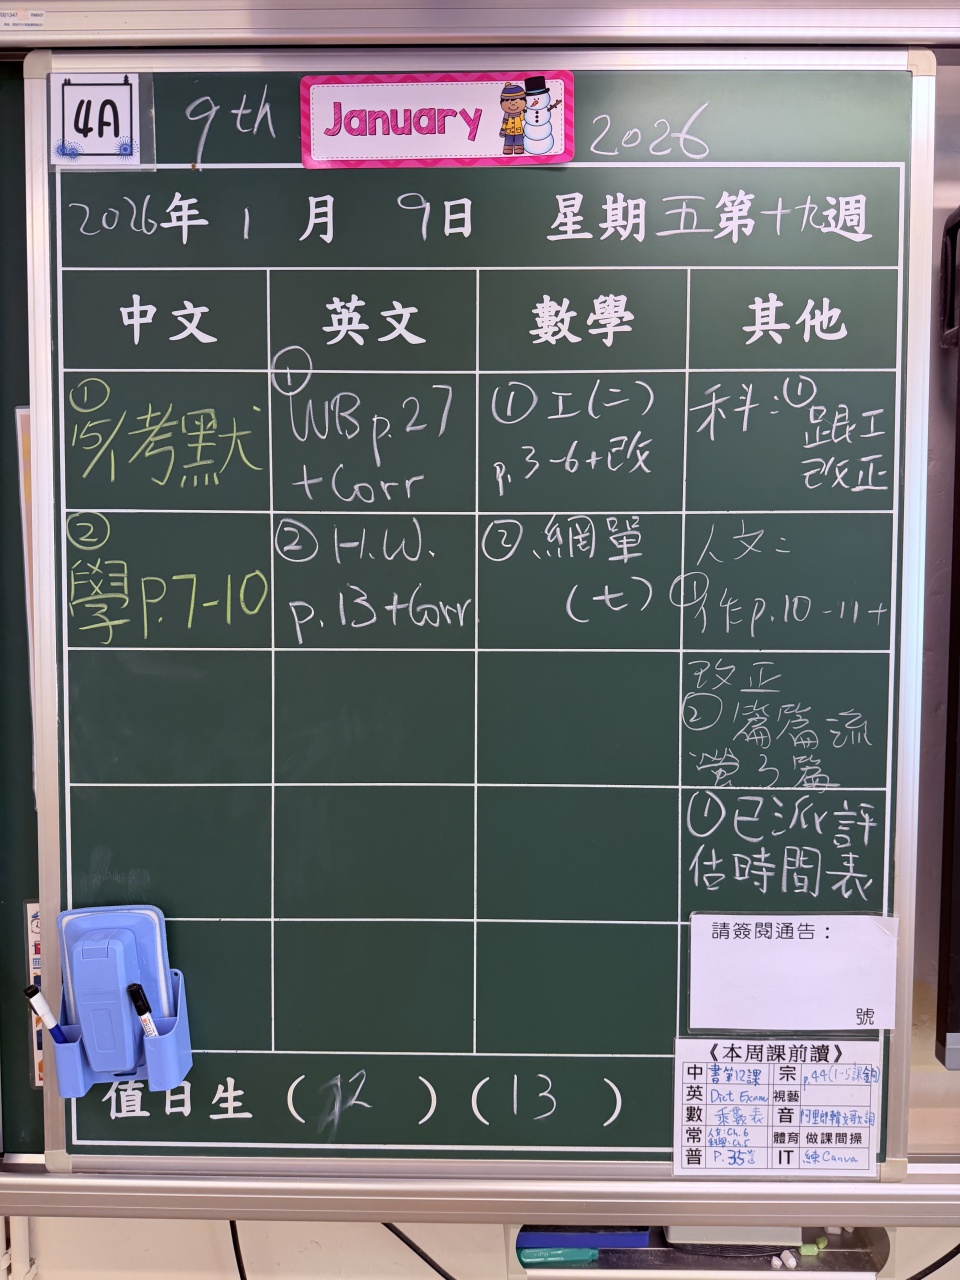 4A
9th
January
2026
2026年1月9日 星期五第十九週
中文
英文
數學
其他
①
15/1考默
②
學p.7-10
①
WB p.27
+Corr
② H.W.
p.13+Corr
① 工(二)
p.3-6+改
② 網單
(七)
科:①
跟工
改正
人文:
①作p.10-11+
改正
② 篇篇流
螢3篇
①已派評
估時間表
請簽閱通告：
號
值日生 (12) (13)
《本周課前讀》
中 書第12課 宗 p.44(1-5課銅)
英 Dict Exam 視藝
數 乘數表 音 阿里郎韓文歌詞
常 人文:Ch.6 體育 做課間操
科學:Ch.5
普 P.35 IT 練Canva